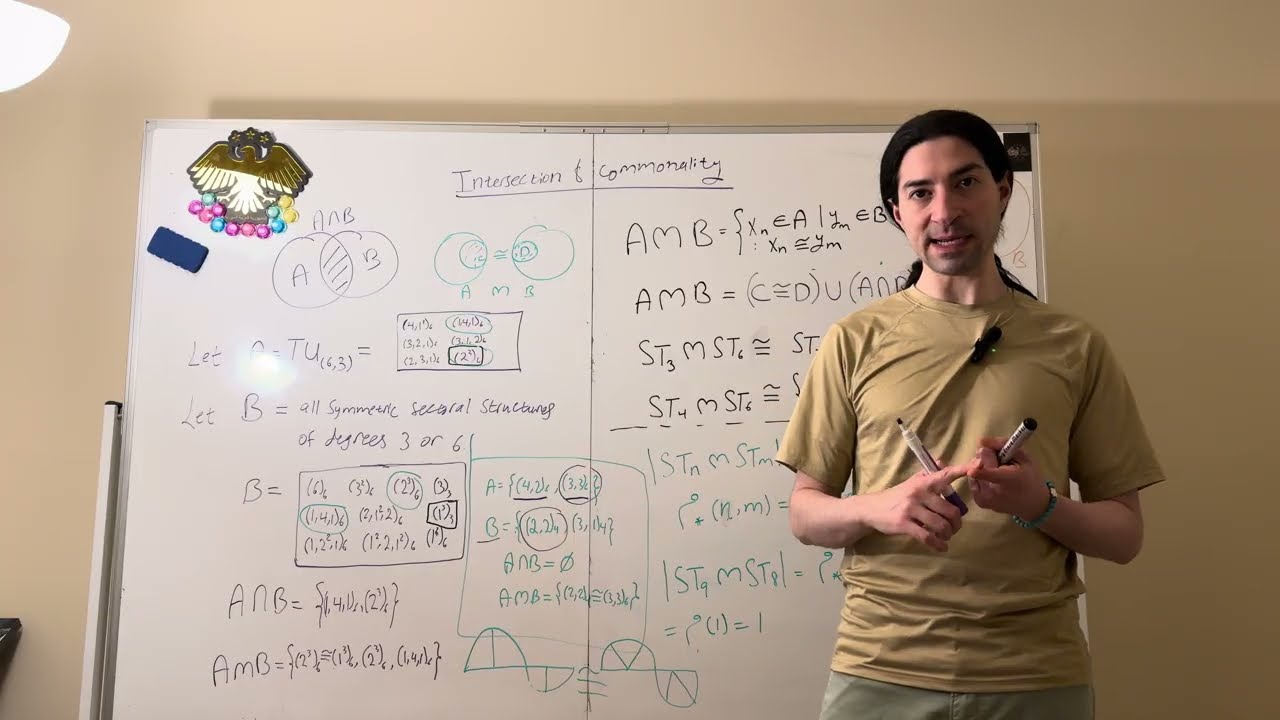 Intersection & Commonality
A∩B
A B
C ≅ D
A ო B
Let A = TU(6,3) =
(4,1²)₆ (1,4,1)₆
(3,2,1)₆ (3,1,2)₆
(2,3,1)₆ (2³)₆
Let B = all symmetric sectoral structures
of degrees 3 or 6
B =
(6)₆ (3²)₆ (2³)₆ (3)₃
(1,4,1)₆ (2,1²,2)₆ (1³)₃
(1,2²,1)₆ (1²,2,1²)₆ (1⁶)₆
A∩B = {(1,4,1)₆, (2³)₆}
AოB = {(2³)₆≅(1³)₆, (2³)₆, (1,4,1)₆}
A = {(4,2)₆, (3,3)₆}
B = {(2,2)₄, (3,1)₄}
A∩B = ∅
AოB = {(2,2)₄≅(3,3)₆}
≅
A ო B = {xₙ ∈ A | yₘ ∈ B
: xₙ ≅ yₘ
A ო B = (C ≅ D) ∪ (A∩
ST₃ ო ST₆ ≅ ST
ST₄ ო ST₆ ≅ S
|STₙ ო STₘ|
ƍ⋆(n,m) =
|ST₉ ო ST₈| = ƍ⋆
= ƍ(1) = 1
B